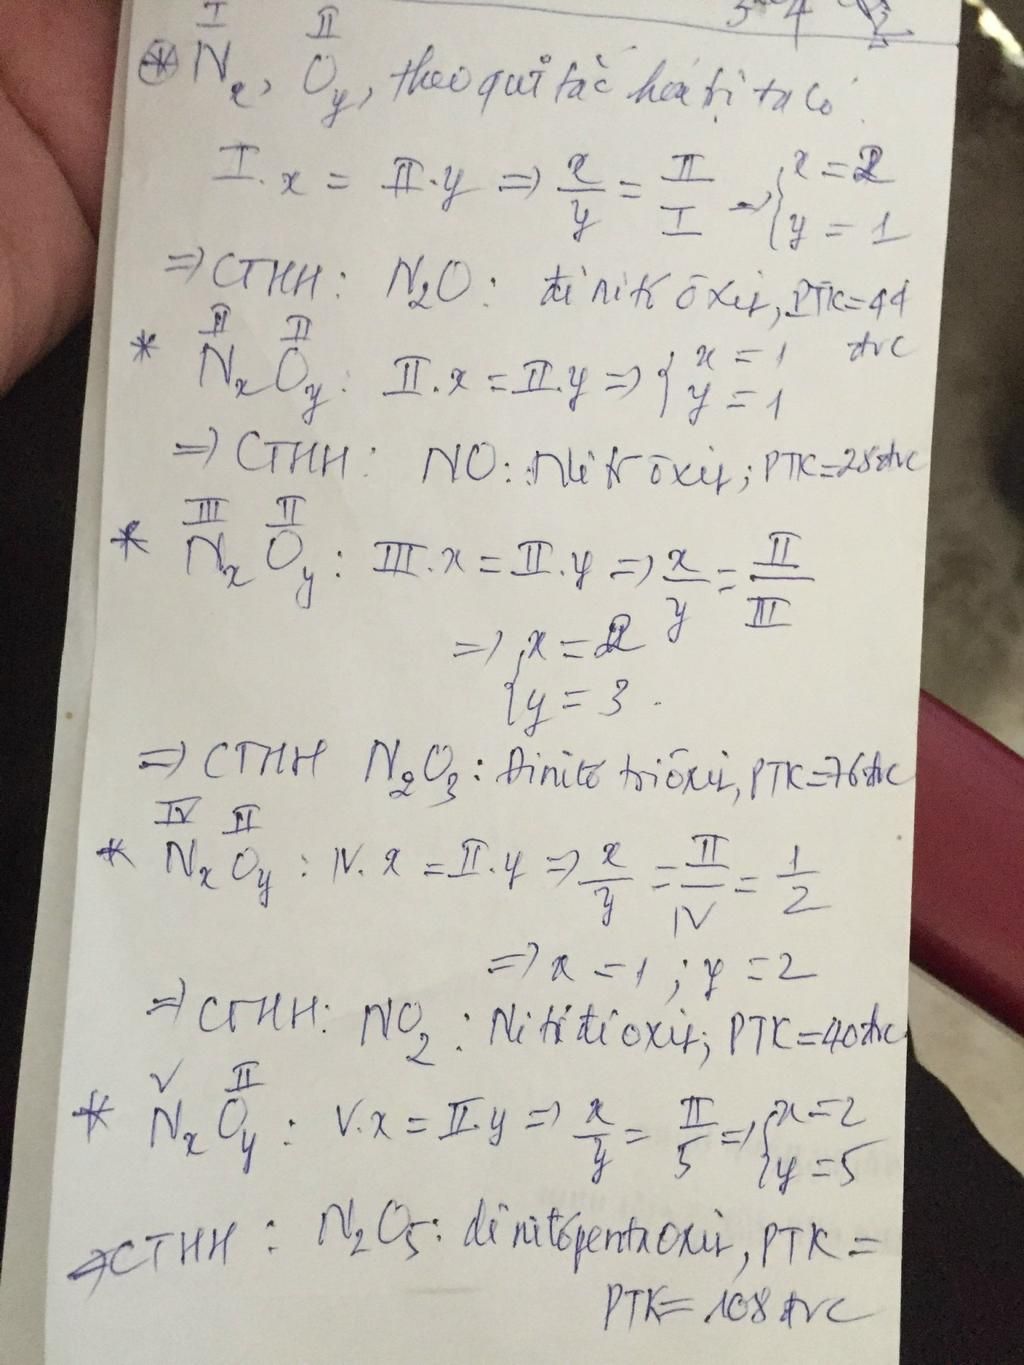 I II
* Nx, Oy, theo qui tắc hóa trị ta có:
I.x = II.y => x/y = II/I => { x = 2
y = 1
=> CTHH: N2O: đinitơ ôxit, PTK=44
đvc
II II
* NxOy: II.x = II.y => { x = 1
y = 1
=> CTHH: NO: Nitơ ôxit; PTK=28đvc
III II
* NxOy: III.x = II.y => x/y = II/III
=> { x = 2
y = 3.
=> CTHH N2O3: Đinitơ triôxit, PTK=76đvc
IV II
* NxOy: IV.x = II.y => x/y = II/IV = 1/2
=> x = 1; y = 2
=> CTHH: NO2: Nitơ đioxit; PTK=40đvc
V II
* NxOy: V.x = II.y => x/y = II/5 => { x=2
y=5
=> CTHH: N2O5: đinitơpentaoxit, PTK =
PTK= 108 đvc